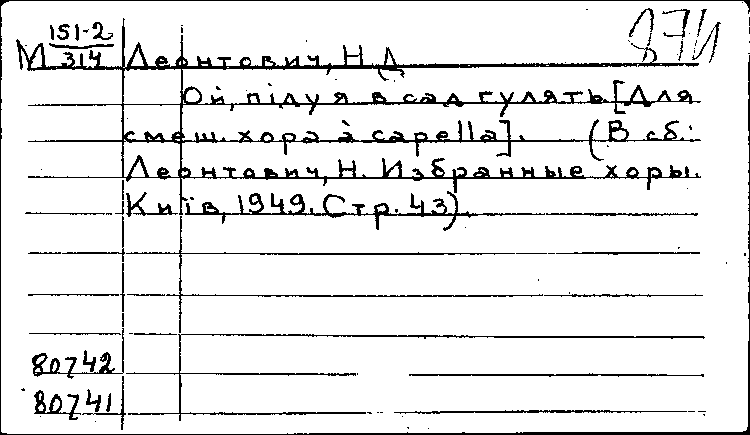 151-2 87И
М 314 Леонтович, Н.Д
Ой, піду я в сад гулять [Для
смеш. хора à capella]. (В сб.:
Леонтович, Н. Избранные хоры.
Київ, 1949. Стр. 43).
80742
80741